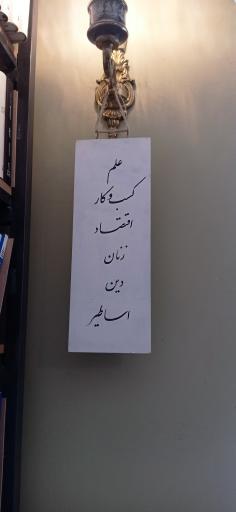 علم
کسب و کار
اقتصاد
زنان
دین
اساطیر